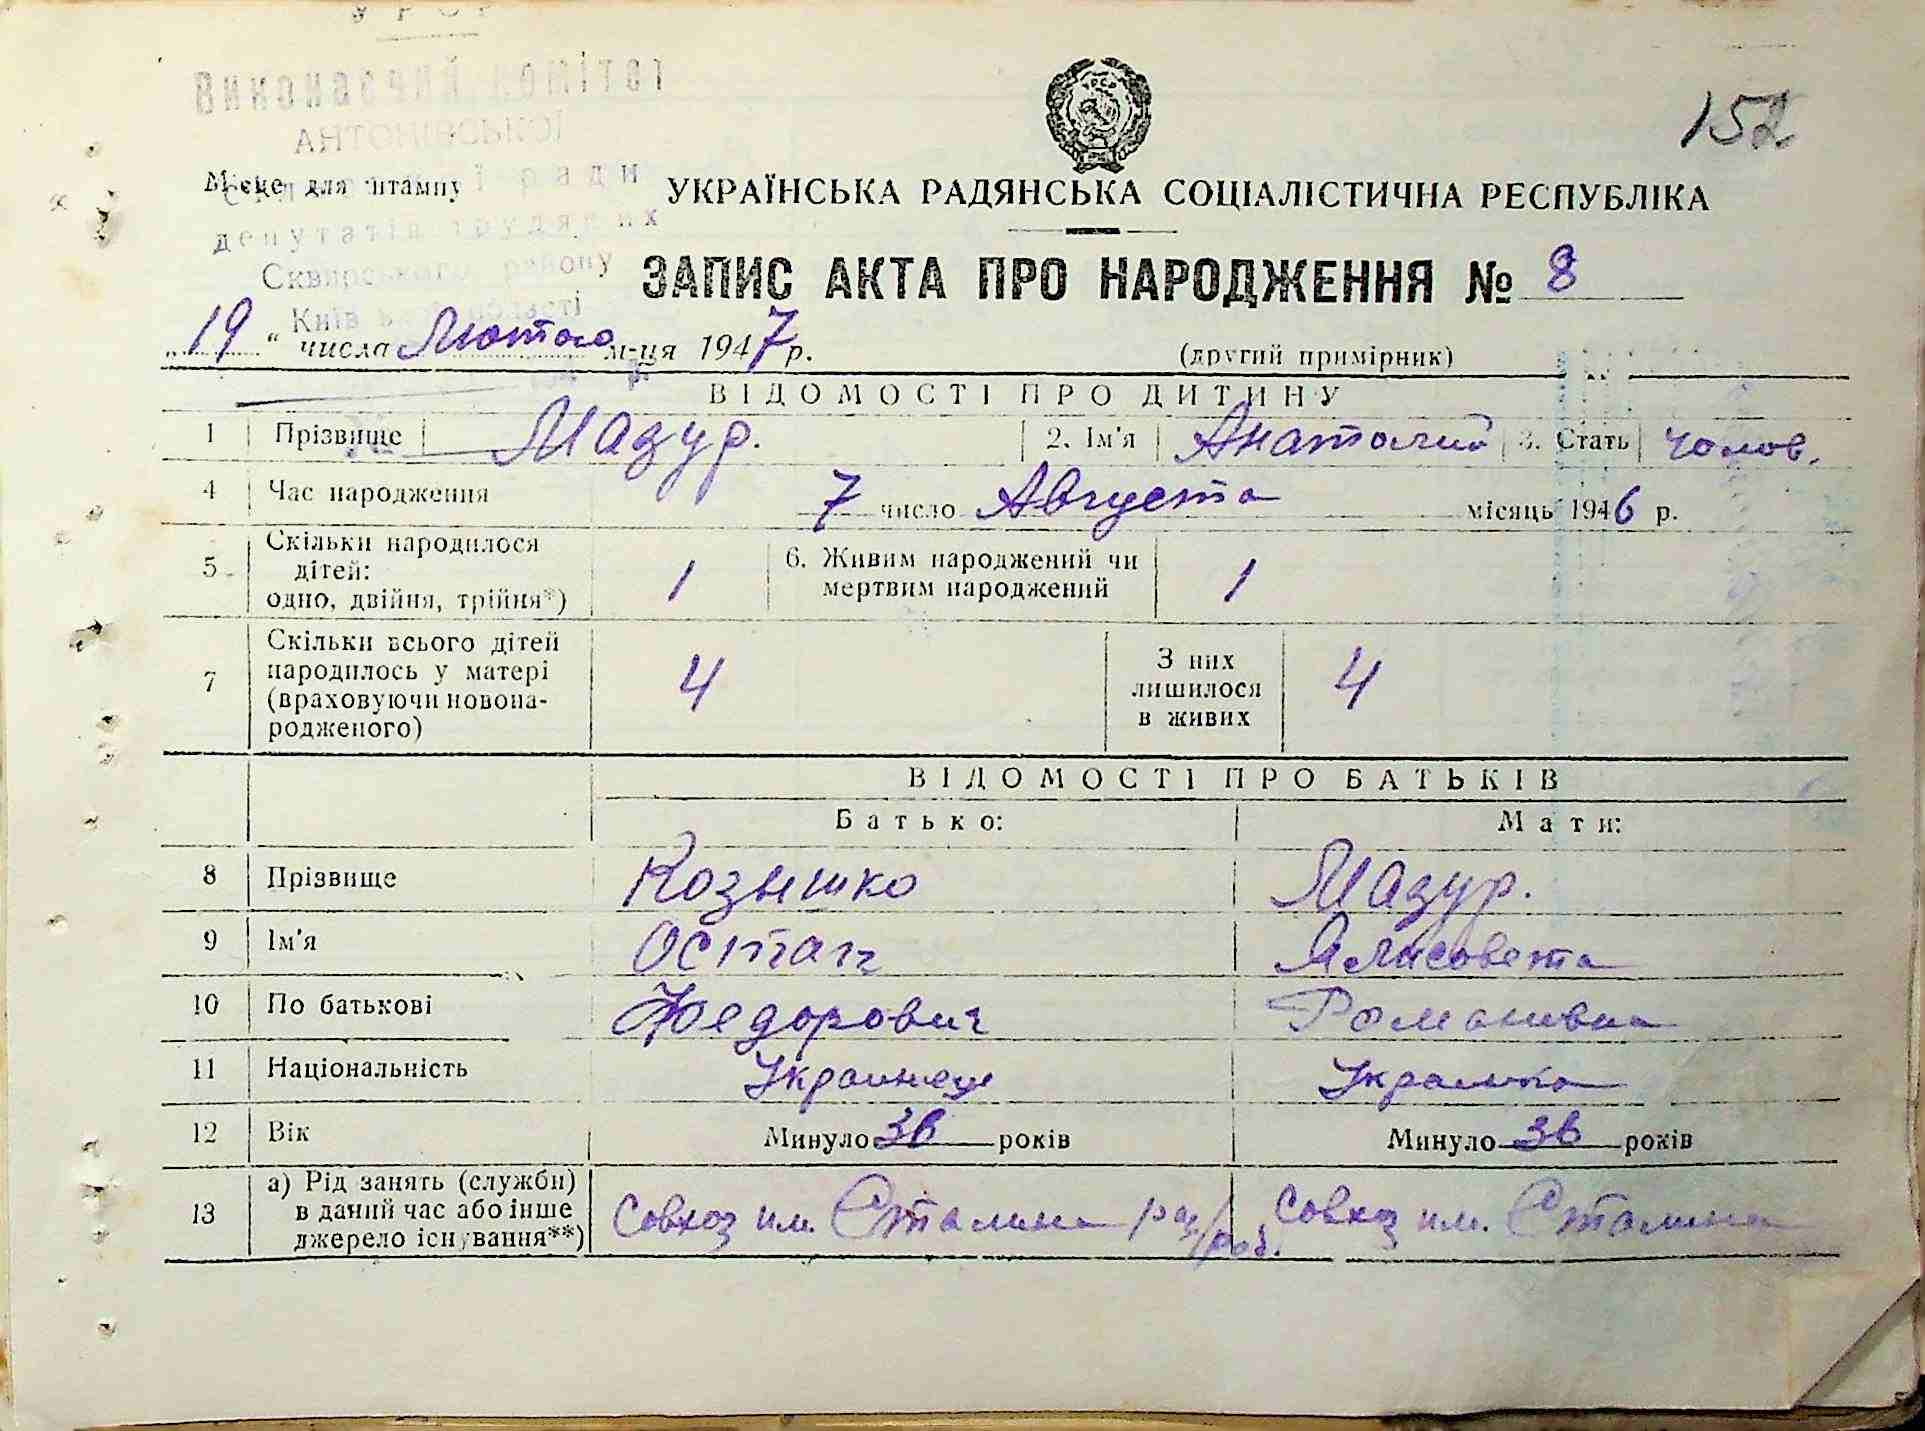 У Р С Р
Виконавчий комітет
АНТОНІВСЬКОЇ
Місце для штампу
сільської ради
депутатів трудящих
Сквирського району
Київської області
152
УКРАЇНСЬКА РАДЯНСЬКА СОЦІАЛІСТИЧНА РЕСПУБЛІКА
ЗАПИС АКТА ПРО НАРОДЖЕННЯ № 8
„19“ числа Лютого м-ця 1947 р.
(другий примірник)
ВІДОМОСТІ ПРО ДИТИНУ
1 Прізвище Мазур. 2. Ім'я Анатолий 3. Стать чолов.
4 Час народження 7 число Августа місяць 1946 р.
5 Скільки народилося дітей: одно, двійня, трійня*) 1 6. Живим народжений чи мертвим народжений 1
7 Скільки всього дітей народилось у матері (враховуючи новонародженого) 4 З них лишилося в живих 4
ВІДОМОСТІ ПРО БАТЬКІВ
Батько: Мати:
8 Прізвище Козышко Мазур.
9 Ім'я Остап Ялисовета
10 По батькові Федорович Романивна
11 Національність Украинец Украинка
12 Вік Минуло 36 років Минуло 36 років
13 а) Рід занять (служби) в даний час або інше джерело існування**) Совхоз им. Сталина раз/роб. Совхоз им. Сталина